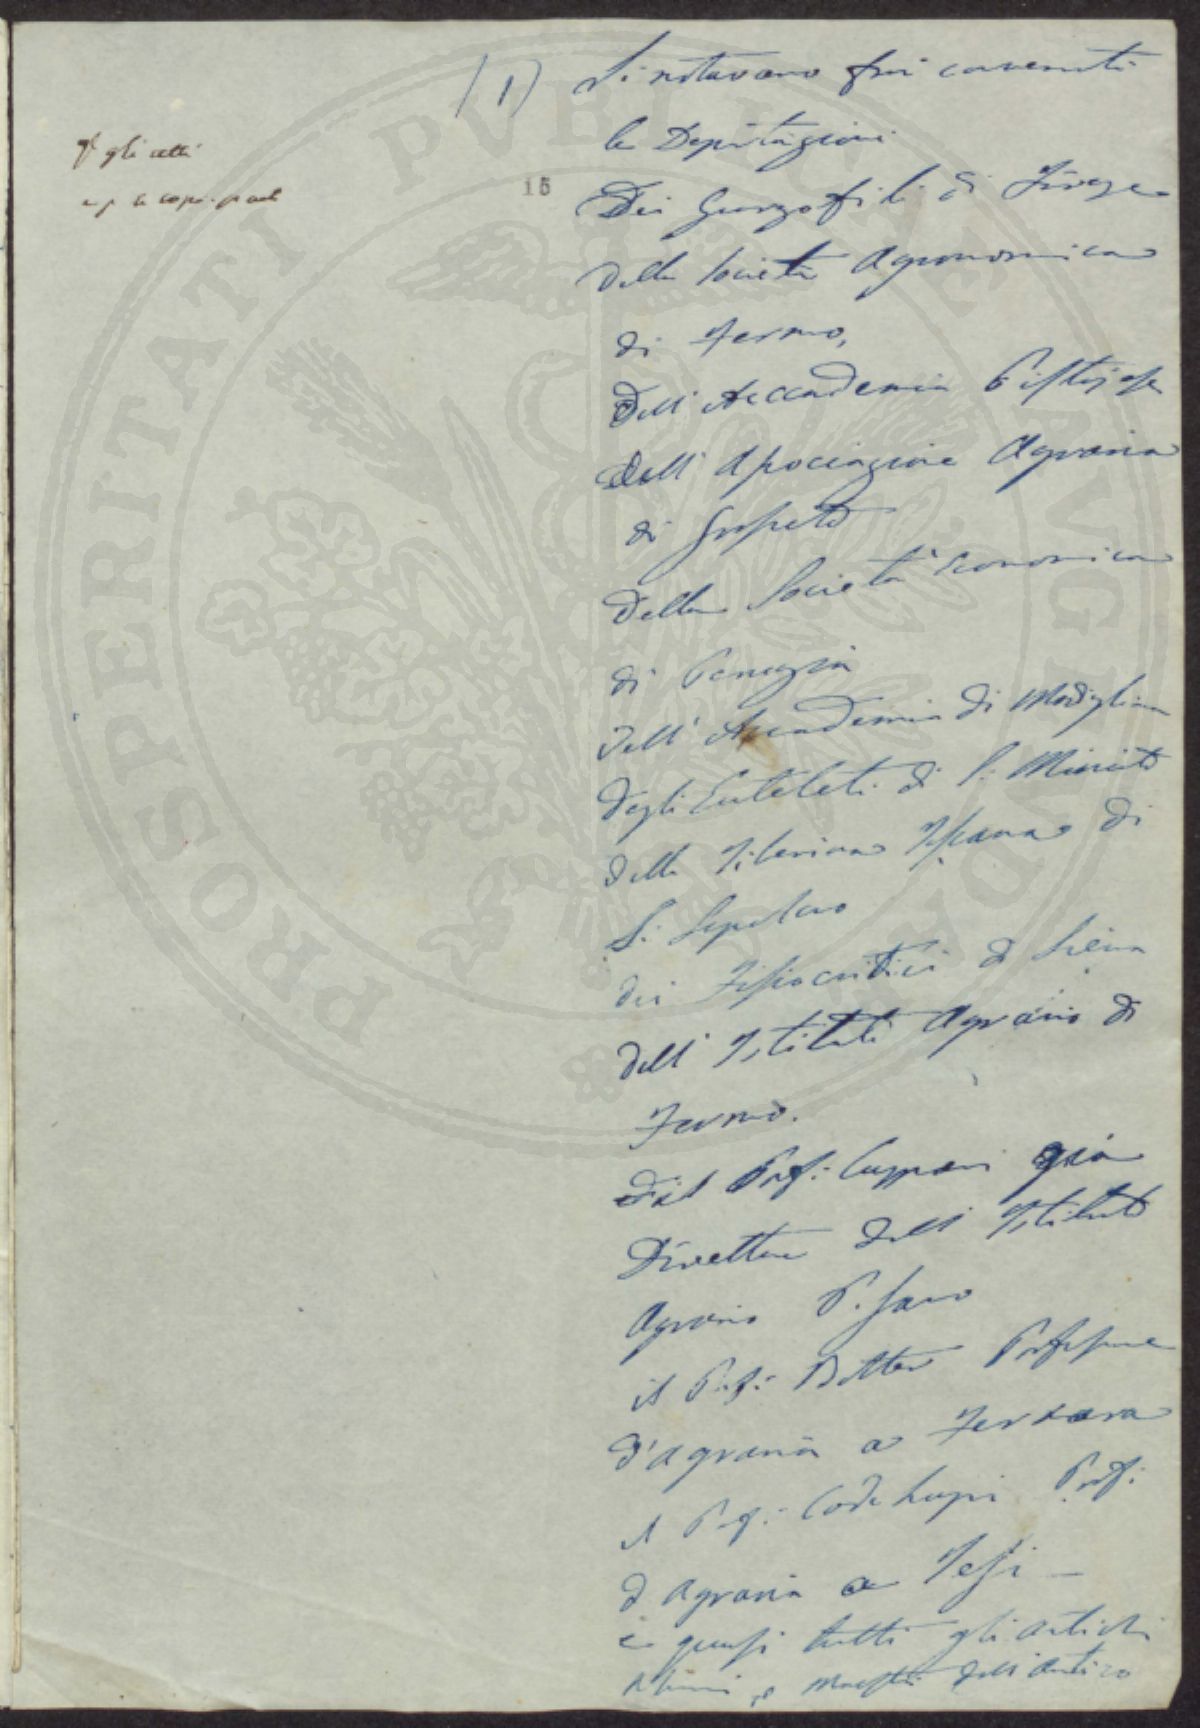 (1) Si notavano fra i convenuti
le Deputazioni
Dei Georgofili di Firenze
della Società Agronomica
di Fermo,
Dell' Accademia Pistojese
Dell' Associazione Agraria
di Grosseto
Della Società Economica
di Perugia
Dell' Accademia di Modigliana
degli Euteleti di S. Miniato
della Tiberina Toscana di
S. Sepolcro
dei Fisiocritici di Siena
dell' Istituto Agrario di
Fermo.
Il Prof: Cuppari già
Direttore dell' Istituto
Agrario Pisano
il Prof: Botter Professore
d'Agraria a Ferrara
il Prof: Codelupi Prof:
d'Agraria a Jesi —
e quasi tutti gli antichi
Alunni e Maestri dell'antico
gli atti
15
PROSPERITATI PVBLICAE AVGENDAE